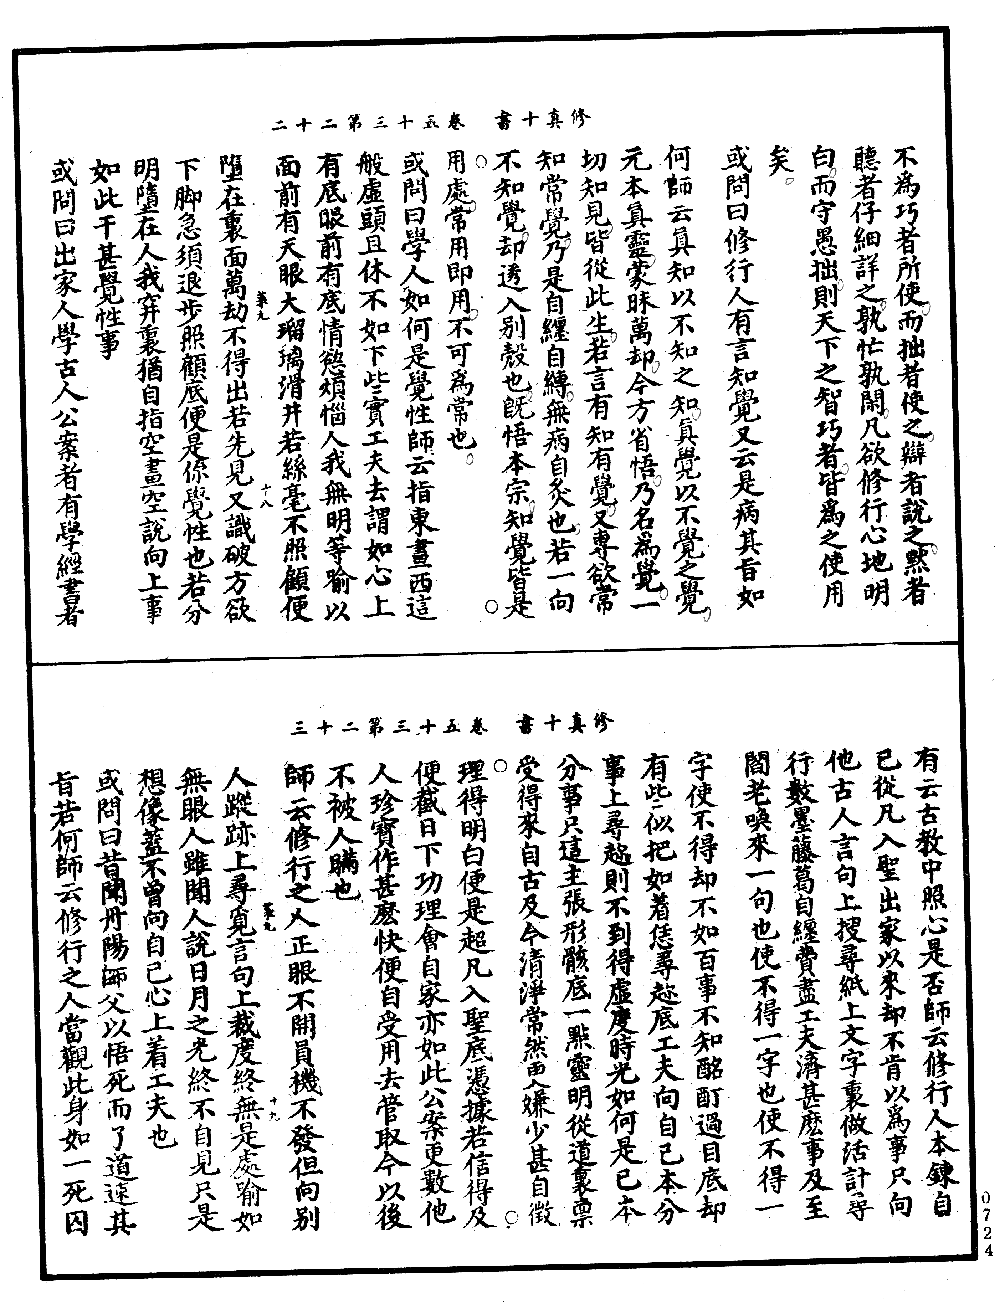 修真十書　卷五十三第二十二
不為巧者所使而拙者使之辯者說之黙者
聽者仔細詳之孰忙孰閑凡欲修行心地明
白而守愚拙則天下之智巧者皆為之使用
矣
或問曰修行人有言知覺又云是病其旨如
何師云真知以不知之知真覺以不覺之覺
元本真靈蒙昧萬却今方省悟乃名為覺一
切知見皆從此生若言有知有覺又專欲常
知常覺乃是自纏自縛無病自灸也若一向
不知覺却透入别殼也旣悟本宗知覺皆是
用處常用即用不可為常也
或問曰學人如何是覺性師云指東畫西這
般虛頭且休不如下些實工夫去謂如心上
有底眼前有底情慾煩惱人我無明等喻以
面前有天眼大瑠璃滑井若絲毫不照顧便
墮在裏面萬劫不得出若先見又識破方欲
下脚急須退步照顧底便是係覺性也若分
明墮在人我穽裏猶自指空畫空說向上事
如此干甚覺性事
或問曰出家人學古人公案者有學經書者
筆九
十八
修真十書　卷五十三第二十三
有云古教中照心是否師云修行人本鍊自
已從凡入聖出家以來却不肯以為事只向
他古人言句上搜尋紙上文字裏做活計尋
行數墨藤葛自纏費盡工夫濟甚麽事及至
閻老喚來一句也使不得一字也使不得一
字使不得却不如百事不知酩酊過日底却
有些似把如着恁尋趂底工夫向自己本分
事上尋趂則不到得虛度時光如何是已本
分事只這主張形骸底一點靈明從道裏禀
受得來自古及今清淨常然更嫌少甚自徵
理得明白便是超凡入聖底憑據若信得及
便截日下功理會自家亦如此公案更數他
人珍寶作甚麽快便自受用去管取今以後
不被人瞞也
師云修行之人正眼不開員機不發但向别
人蹤跡上尋覓言句上裁度終無是處喻如
無眼人雖聞人說日月之光終不自見只是
想像蓋不曾向自己心上着工夫也
或問曰昔聞丹陽師父以悟死而了道速其
旨若何師云修行之人當觀此身如一死囚
筆九
十九
0724